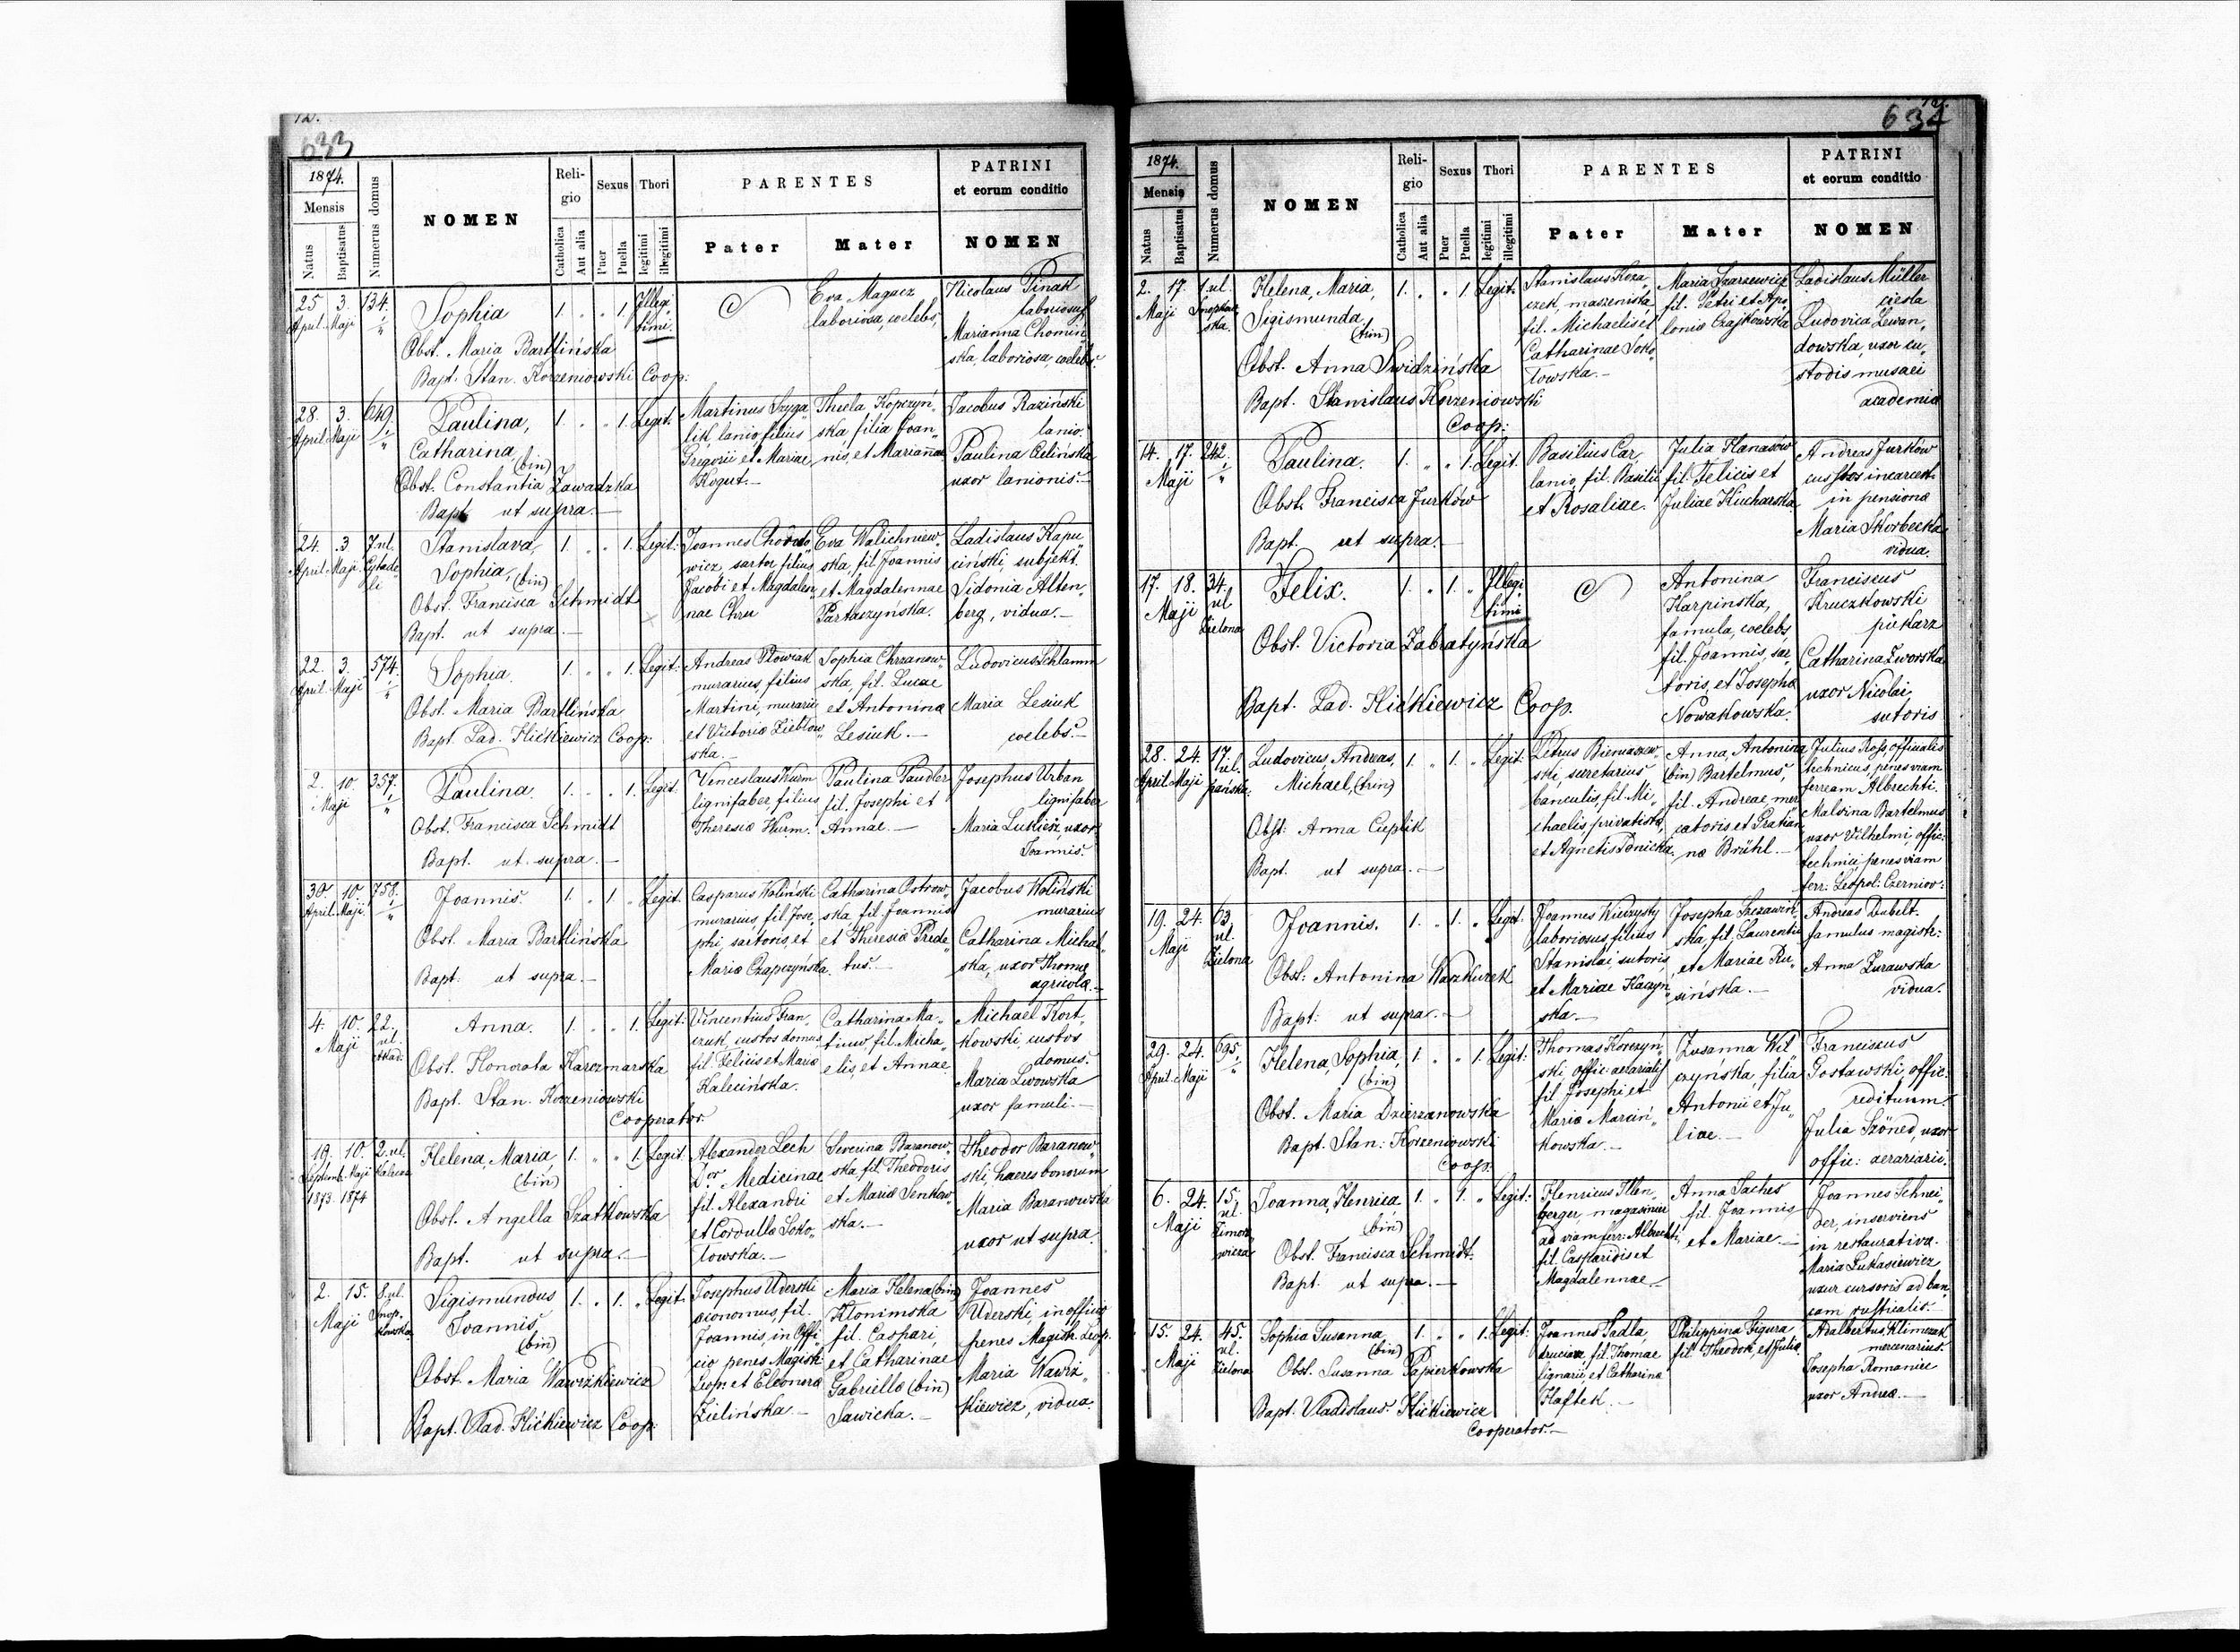 12.
633
1874.
Mensis
Natus
Baptisatus
Numerus domus
NOMEN
Reli-
gio
Catholica
Aut alia
Sexus
Puer
Puella
Thori
legitimi
illegitimi
PARENTES
Pater
Mater
PATRINI
et eorum conditio
NOMEN
25 3 134.
April. Maji
Sophia
1. 1. Illegi
timi.
Obst. Maria Bartlińska
Bapt. Stan. Korzeniowski Coop:
Eva Magacz
laboriosa, coelebs,
Nicolaus Pinak
laboriosus
Marianna Chomin„
ska, laboriosa, coelebs.
28. 3. 649.
April. Maji
Paulina,
Catharina
(bin)
1. 1. Legit.
Obst. Constantia Zawadzka
Bapt ut supra.—
Martinus Szyga„
lik, lanio, filius
Gregorii et Mariae
Kogut.—
Thecla Kopczyń„
ska, filia Joan„
nis, et Mariannae
Jacobus Raziński
lanio.
Paulina Celińska
uxor lanionis.—
24. 3 7 ul.
April. Maji.
Stanislava,
Sophia, (bin)
1. 1. Legit:
Obst. Francisca Schmidt
Bapt. ut supra.—
Joannes Chodo„
wicz, sartor, filius
Jacobi et Magdalen„
nae Chru
Eva Walichniew„
ska, fil. Joannis
et Magdalennae
Partaczyńska.
Ladislaus Kapu„
ciński, subjekt.
Sidonia Alten„
berg, vidua.—
22. 3. 574.
April. Maji
Sophia.
1. 1. Legit:
Obst. Maria Bartlińska
Bapt. Lad. Hićkiewicz Coop:
Andreas Słowiak
murarius, filius
Martini, murarii
et Victoriæ Zieblow„
ska.
Sophia Chrzanow„
ska, fil. Lucae
et Antoninæ
Lesiuk.—
Ludovicus Schlamm
Maria Lesiuk
coelebs.—
2. 10. 357.
Maji
Paulina.
1. 1. Legit.
Obst. Francisca Schmidt
Bapt. ut supra.—
Venceslaus Kurm
lignifaber, filius
Theresiæ Kurm.
Paulina Paudler
fil. Josephi et
Annae.—
Josephus Urban
lignifaber
Maria Lukiesz, uxor
Joannis.
30. 10. 758.
April. Maji.
Joannis.
1. 1. Legit.
Obst. Maria Bartlińska
Bapt. ut supra.—
Casparus Woliński
murarius, fil. Jose„
phi, sartoris, et
Mariæ Czapczyńska.
Catharina Ostrow„
ska, fil. Joannis
et Theresiæ Pride„
tus.—
Jacobus Woliński
murarius
Catharina Michal„
ska, uxor Thomæ
agricolæ.—
4. 10. 22.
Maji ul.
Akad.
Anna.
1. 1. Legit:
Obst. Honorata Karczmarska
Bapt. Stan. Korzeniowski
Cooperator.
Vincentius Fran„
czuk, custos domus
fil. Felicis et Mariæ
Kalecińska.
Catharina Ma„
tiuw, fil. Micha„
elis, et Annae.
Michael Kort„
kowski, custos
domus.
Maria Lwowska
uxor famuli.—
19. 10. 2. ul.
Septemb. Maji
1873. 1874
Helena, Maria,
(bin)
1. 1. Legit.
Obst. Angella Szatkowska
Bapt. ut supra.—
Alexander Lech
Dor. Medicinae
fil. Alexandri
et Cordullæ Soko„
łowska.—
Severina Baranow„
ska, fil. Theodoris
et Mariæ Senkow„
ska.—
Theodor Baranow„
ski, haeres bonorum
Maria Baranowska
uxor ut supra.
2. 15. 8. ul.
Maji Snop„
kowska
Sigismundus
Joannis,
(bin)
1. 1. Legit.
Obst. Maria Wawrzkiewicz
Bapt. Vlad. Hićkiewicz Coop:
Josephus Uderski
oionomus, fil.
Joannis, in Offi„
cio penes Magistr.
Leop: et Eleonoræ
Zielińska.—
Maria Helena (bin)
Klonimska
fil. Caspari,
et Catharinae
Gabriellæ (bin)
Sawicka.—
Joannes
Uderski, in officio
penes Magistr. Leop.
Maria Wawrz„
kiewicz, vidua.
634
1874.
Mensis
Natus
Baptisatus
Numerus domus
NOMEN
Reli-
gio
Catholica
Aut alia
Sexus
Puer
Puella
Thori
legitimi
illegitimi
PARENTES
Pater
Mater
PATRINI
et eorum conditio
NOMEN
2. 17. 1. ul.
Maji Snopkow
ska.
Helena, Maria,
Sigismunda
(trin)
1. 1. Legit:
Obst. Anna Swidzińska
Bapt. Stanislaus Korzeniowski
Coop:
Stanislaus Kora„
czek, maszenista,
fil. Michaelis et
Catharinae Soko„
łowska.—
Maria Szarzewicz
fil. Petri et Apo„
loniæ Czajkowska
Ladislaus Müller
ciesla
Ludovica Lewan„
dowska, uxor cu„
stodis musaei
academiæ
14. 17. 242.
Maji
Paulina.
1. 1. Legit.
Obst. Francisca Jurków
Bapt. ut supra.
Basilius Car
lanio, fil. Basilii
et Rosaliae.
Julia Hanasów
fil. Felicis et
Juliae Kucharska
Andreas Jurków
custos incarcert.
in pensione
Maria Skorbecka
vidua.
17. 18. 34.
Maji ul
Zielona
Felix.
1. 1. Illegi
timi
Obst. Victoria Zabratyńska
Bapt. Lad. Hićkiewicz Coop.
Antonina
Karpinska,
famula, coelebs,
fil. Joannis, sar„
toris, et Josephæ
Nowakowska.
Franciscus
Kruczkowski
piekarz
Catharina Zworska
uxor Nicolai,
sutoris
28. 24. 17
April. Maji ul.
pańska:
Ludovicus, Andreas,
Michael, (trin)
1. 1. Legit:
Obst: Anna Cieplik
Bapt. ut supra.—
Petrus Biernaszew„
ski, secretarius
banculis, fil. Mi„
chaelis, privatista,
et Agnetis Donicka
Anna, Antonina
(bin) Bartelmus,
fil. Andreae, mer„
catoris, et Gratian
næ Brühl.—
Julius Ross, officialis
technicus, penes viam
ferream Albrechti.
Malvina Bartelmus
uxor Vilhelmi, offic:
technici penes viam
ferr: Leopol: Czerniov:
19. 24. 63.
Maji ul.
Zielona
Joannis.
1. 1. Legit:
Obst: Antonina Waszkurek
Bapt: ut supra.—
Joannes Kieczysty
laboriosus, filius
Stanislai, sutoris,
et Mariae Kaczyn„
ska.—
Josepha Szczawin„
ska, fil. Laurentii
et Mariae Ru„
sińska.—
Andreas Dubelt.
famulus magistr:
Anna Żurawska
vidua.
29. 24. 695.
April. Maji
Helena, Sophia,
(bin)
1. 1. Legit:
Obst. Maria Dzierżanowska
Bapt. Stan: Korzeniowski
Coop:
Thomas Korczyń„
ski offic: aerarialis
fil Josephi et
Mariæ Marciń„
kowska.—
Zusanna Wil
czyńska, filia
Antonii et Ju„
liae.—
Franciscus
Gostawski, offic:
redituum.
Julia Szöned, uxor
offic: aerariarii.
6. 24. 15.
Maji ul.
Zimoro
wicza
Joanna, Henrica
(bin)
1. 1. Legit:
Obst. Francisca Schmidt.
Bapt. ut supra.—
Henricus Illen„
berger, magasinier
ad viam ferr: Albrechti
fil. Casparidis et
Magdalennae.—
Anna Saches
fil. Joannis
et Mariae.—
Joannes Schnei„
der, inserviens
in restaurativa.
Maria Lukasiewicz
uxor cursoris ad ban„
cam rusticalis.—
15. 24. 45.
Maji ul.
Zielona
Sophia Susanna
(bin)
1. 1. Legit:
Obst. Susanna Papierkowska
Bapt. Vladislaus. Hićkiewicz
Cooperator.—
Joannes Sadla,
fil. Thomae
lignarii, et Catharinæ
Haftek.—
Philippina Figura
fil. Theodori, et Juliæ
Adalbertus Klimczak
mercenarius.
Josepha Romanice
uxor Andreæ.—